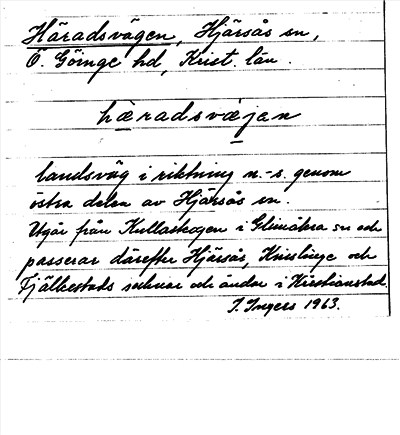 Häradsvägen, Hjärsås sn,
Ö. Göinge hd, Krist. län.
häradsväjan
landsväg i riktning n.-s. genom
östra delen av Hjärsås sn.
Utgår från Kullaskogen i Glimåkra sn och
passerar därefter Hjärsås, Knislinge och
Fjälkestads socknar och ändar i Kristianstad.
I. Ingers 1963.